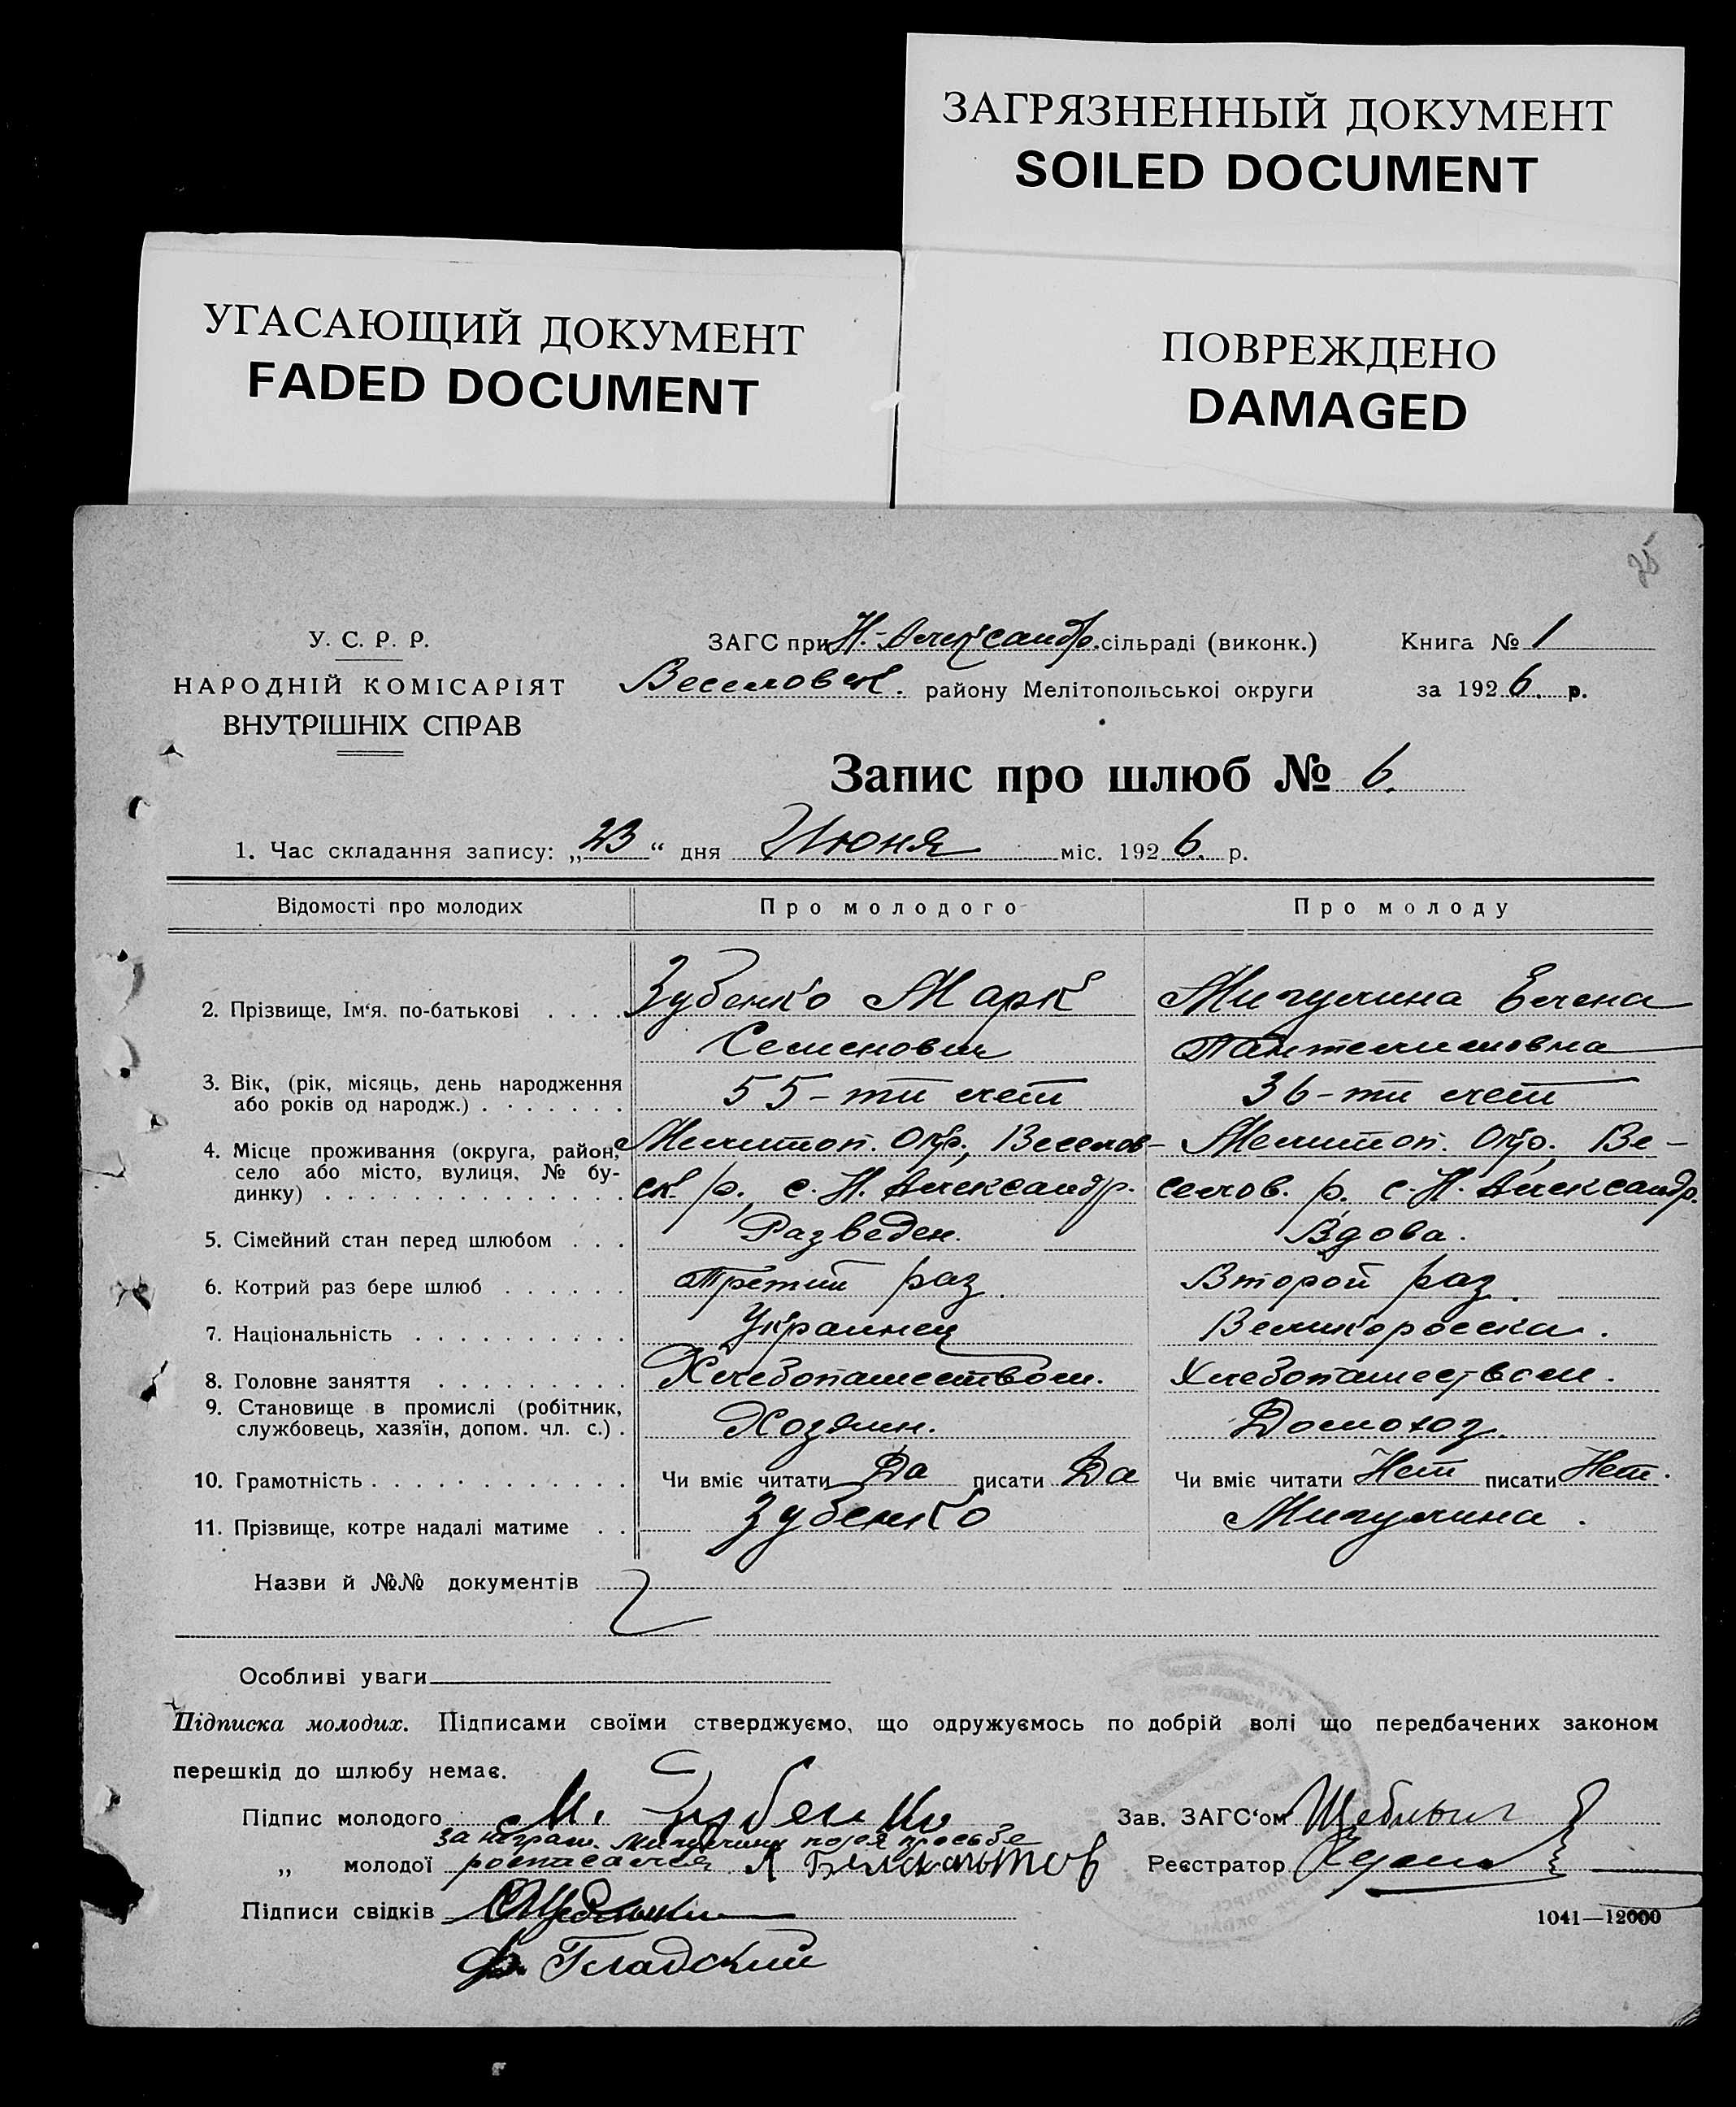 ЗАГРЯЗНЕННЫЙ ДОКУМЕНТ
SOILED DOCUMENT
УГАСАЮЩИЙ ДОКУМЕНТ
FADED DOCUMENT
ПОВРЕЖДЕНО
DAMAGED
У. С. Р. Р.
НАРОДНІЙ КОМІСАРІЯТ
ВНУТРІШНІХ СПРАВ
ЗАГС при Н.-Александр. сільраді (виконк.)
Веселовск. району Мелітопольської округи
Книга № 1
за 1926. р.
Запис про шлюб № 6.
1. Час складання запису: „23“ дня Июня міс. 1926. р.
Відомості про молодих Про молодого Про молоду
2. Прізвище, Ім‘я. по-батькові . . . . Зубенко Марк Мигулина Елена
Семенович Пантелимовна
3. Вік, (рік, місяць, день народження
або років од народж.) . . . . . . . 55-ти лет 36-ти лет
4. Місце проживання (округа, район, Мелитоп. Окр., Веселов- Мелитоп. Окр., Ве-
село або місто, вулиця, № бу-
динку) . . . . . . . . . . . . . . ск. р., с. Н. Александр. селов. р. с. Н. Александр.
5. Сімейний стан перед шлюбом . . . Разведен. Вдова.
6. Котрий раз бере шлюб . . . . . . Третий раз. Второй раз.
7. Національність . . . . . . . . . . Украинец Великоросска.
8. Головне заняття . . . . . . . . . Хлебопашеством. Хлебопашеством.
9. Становище в промислі (робітник,
службовець, хазяїн, допом. чл. с.) . Хозяин. Домохоз.
10. Грамотність . . . . . . . . . . . . Чи вміє читати Да писати Да Чи вміє читати Нет писати Нет.
11. Прізвище, котре надалі матиме . . Зубенко Мигулина.
Назви й №№ документів
Особливі уваги
Підписка молодих. Підписами своїми стверджуємо, що одружуємось по добрій волі що передбачених законом
перешкід до шлюбу немає.
Підпис молодого М. Зубенко Зав. ЗАГС‘ом
за неграм. Мигулину по ея просьбе
„ молодої росписался Реєстратор
Підписи свідків
Ф. Гладский
1041—12000